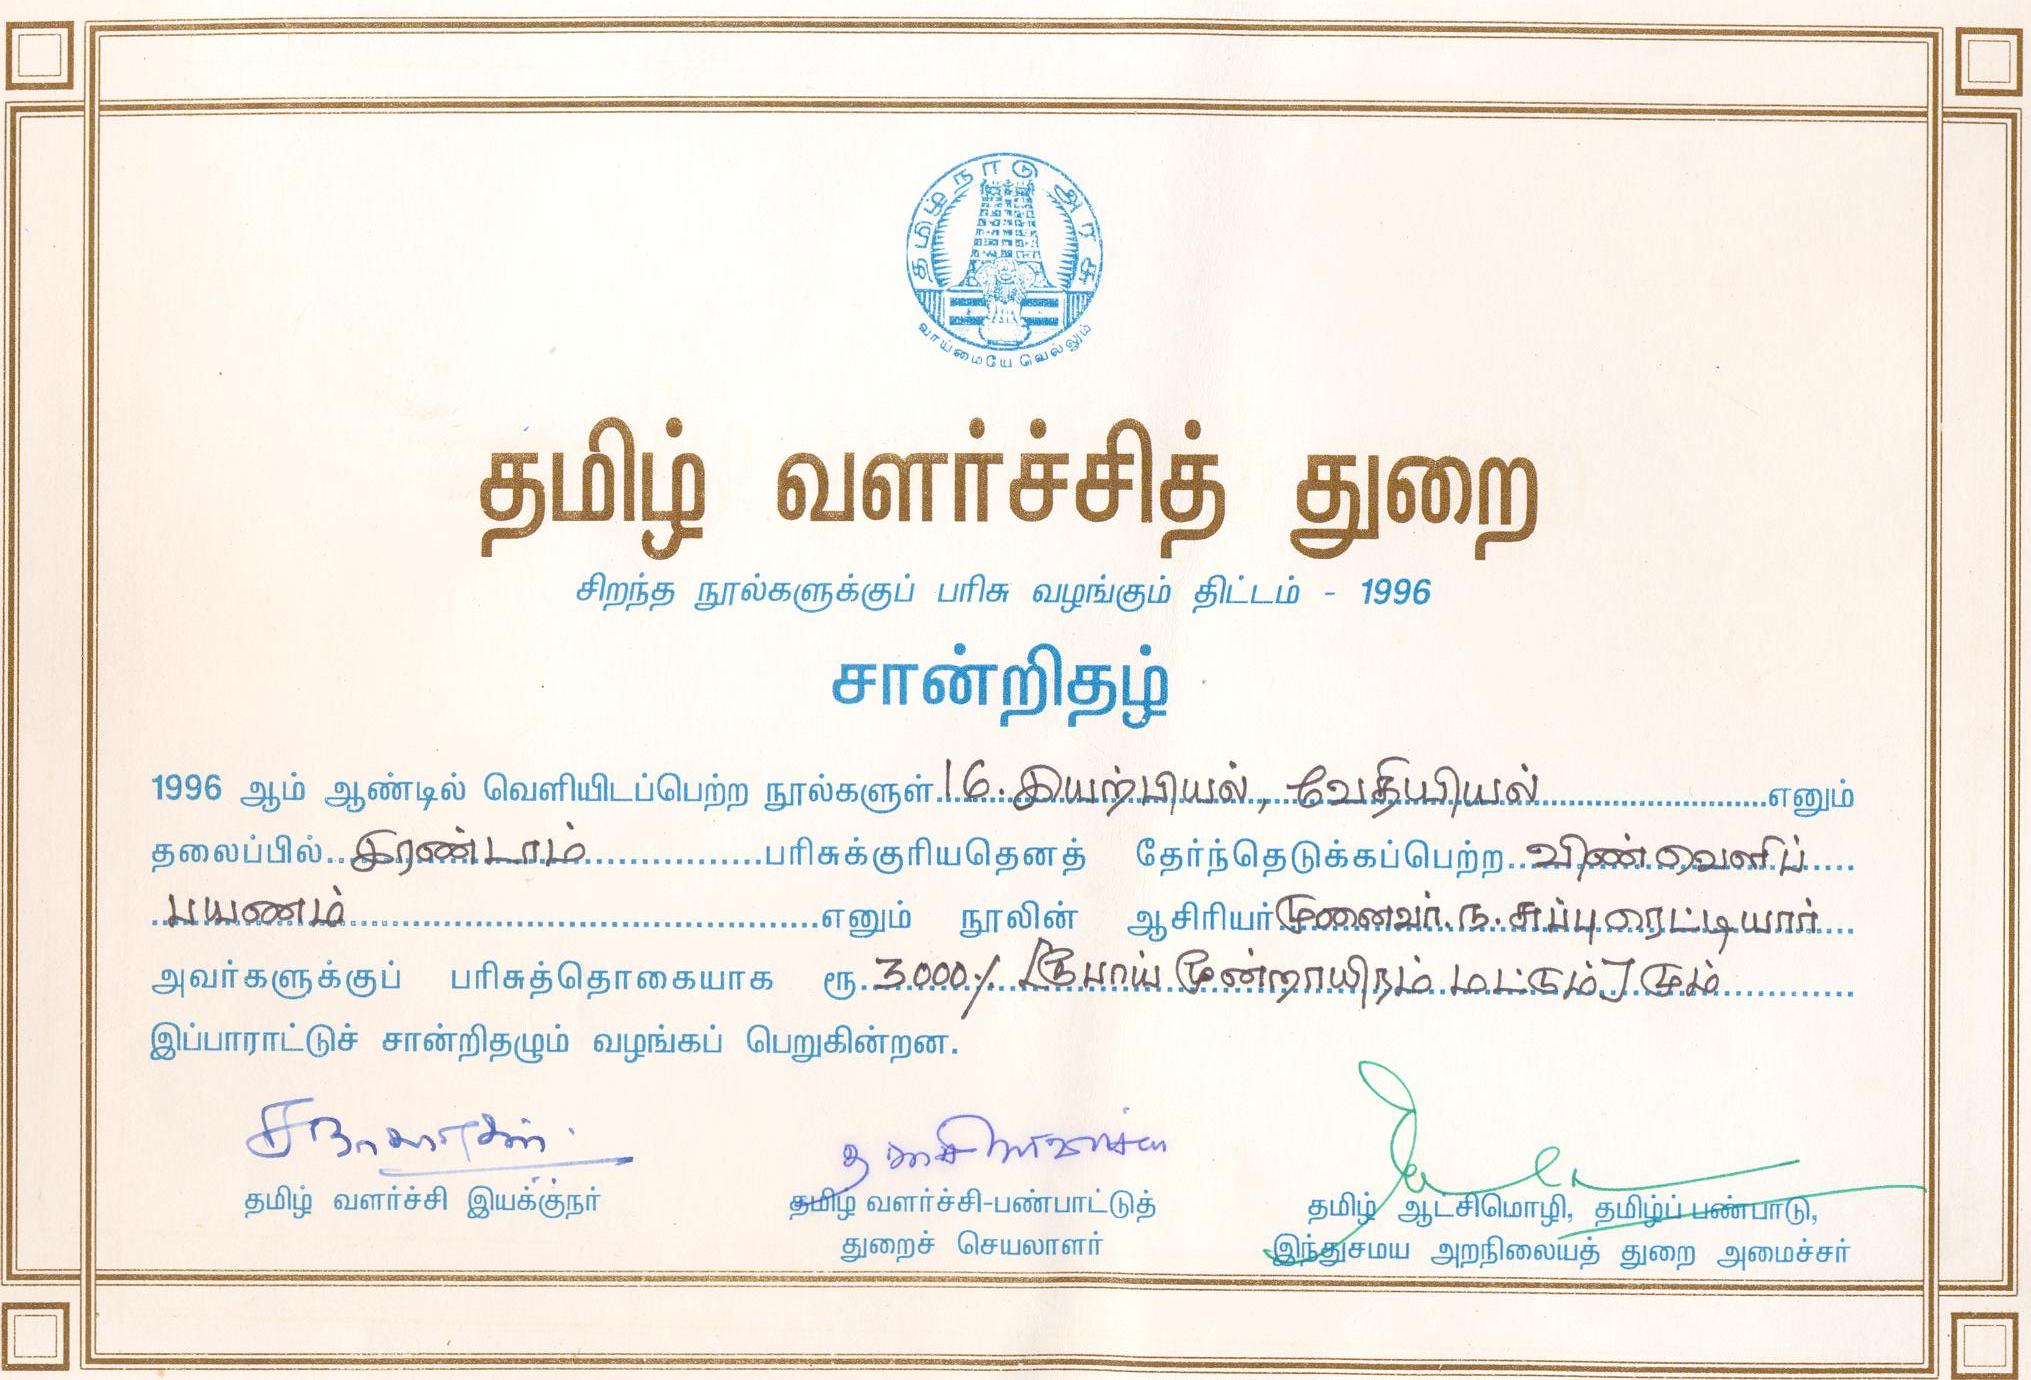 தமிழ்நாடு அரசு
வாய்மையே வெல்லும்
தமிழ் வளர்ச்சித் துறை
சிறந்த நூல்களுக்குப் பரிசு வழங்கும் திட்டம் - 1996
சான்றிதழ்
1996 ஆம் ஆண்டில் வெளியிடப்பெற்ற நூல்களுள் 16. இயற்பியல், வேதியியல் எனும்
தலைப்பில் இரண்டாம் பரிசுக்குரியதெனத் தேர்ந்தெடுக்கப்பெற்ற விண்வெளிப்
பயணம் எனும் நூலின் ஆசிரியர் முனைவர். ந. சுப்புரெட்டியார்
அவர்களுக்குப் பரிசுத்தொகையாக ரூ. 3000/- [ரூபாய் மூன்றாயிரம் மட்டும்] மும்
இப்பாராட்டுச் சான்றிதழும் வழங்கப் பெறுகின்றன.
தமிழ் வளர்ச்சி இயக்குநர்
தமிழ் வளர்ச்சி-பண்பாட்டுத்
துறைச் செயலாளர்
தமிழ் ஆட்சிமொழி, தமிழ்ப் பண்பாடு,
இந்துசமய அறநிலையத் துறை அமைச்சர்